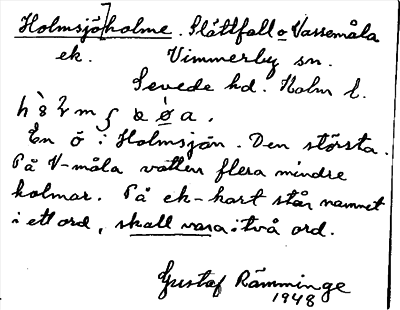 Holmsjö]holme. Slättfall o Vassemåla
ek. Vimmerby sn.
Sevede hd. Kalm l.
En ö i Holmsjön. Den största.
På V-måla vatten flera mindre
holmar. På ek-kart står namnet
i ett ord, skall vara i två ord.
Gustaf Rämminge
1948